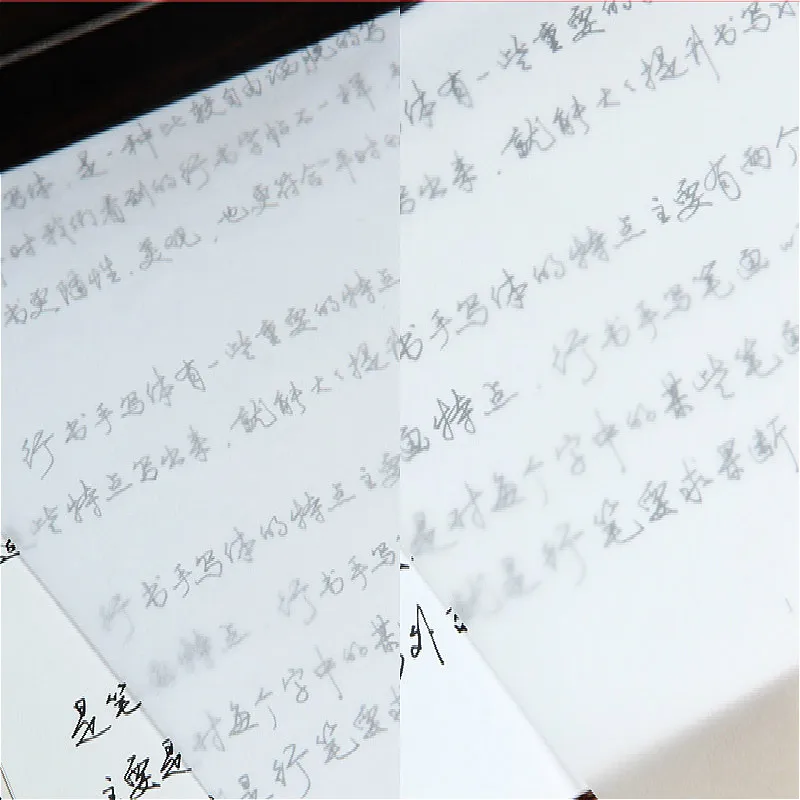 是一种比较自由
写体，是一种比较自由活脱的写
时我们看到的行书字帖不一样
书更随性、美观，也更符合平时
行书手写体有一些重要的特点
些特点写出来，就能大大提升
行书手写体的特点主要
特点，行书手写
对每个字中的某
是行笔要求
是笔
主要是
体有一些重要的
写出来，就能大大提升书写
书手写体的特点主要有两个
画特点，行书手写笔画
是对每个字中的某些笔画
就是行笔要求果断
外